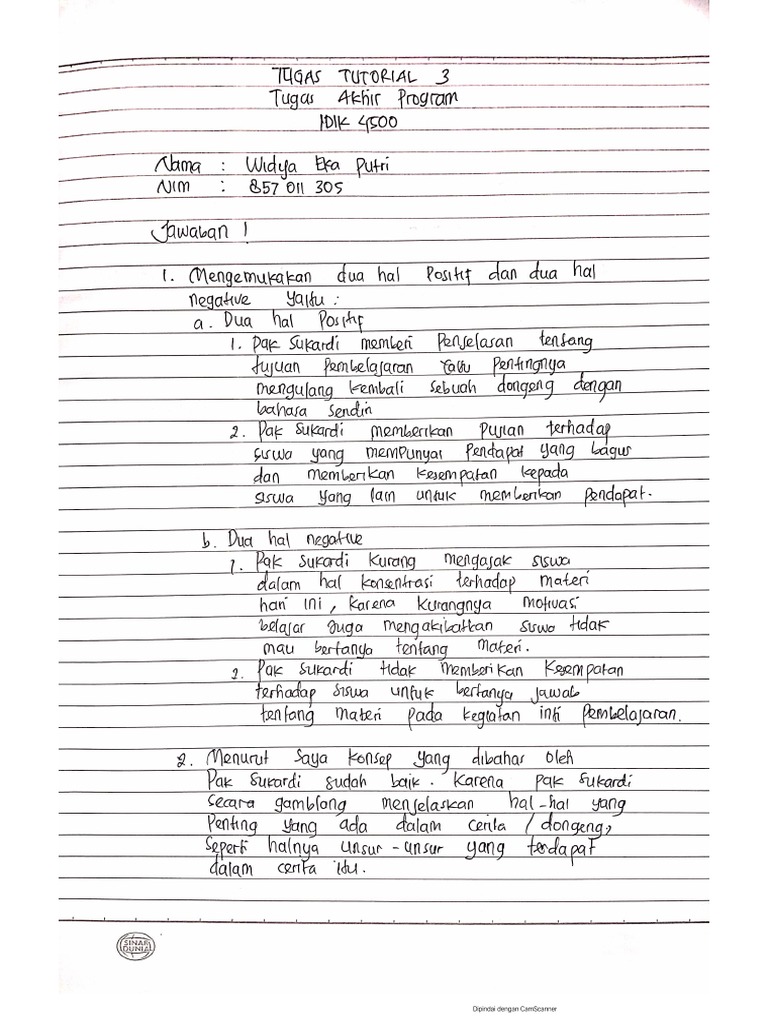 TUGAS TUTORIAL 3
Tugas Akhir Program
IDIK 4500
Nama : Widya Eka Putri
NIM : 857 011 305
Jawaban !
1. Mengemukakan dua hal Positif dan dua hal
negative yaitu :
a. Dua hal Positif
1. Pak Sukardi memberi Penjelasan tentang
tujuan Pembelajaran Yaitu Pentingnya
mengulang kembali sebuah dongeng dengan
bahasa sendiri
2. Pak Sukardi memberikan Pujian terhadap
siswa yang mempunyai Pendapat yang bagus
dan memberikan kesempatan kepada
siswa yang lain untuk memberikan Pendapat.
b. Dua hal negative
1. Pak Sukardi Kurang mengajak siswa
dalam hal konsentrasi terhadap materi
hari ini, karena kurangnya motivasi
belajar Juga mengakibatkan siswa tidak
mau bertanya tentang materi.
2. Pak Sukardi tidak memberikan Kesempatan
terhadap siswa untuk bertanya jawab
tentang materi pada kegiatan inti Pembelajaran.
2. Menurut Saya konsep yang dibahas oleh
Pak Sukardi sudah baik. Karena pak Sukardi
secara gamblang menjelaskan hal-hal yang
Penting yang ada dalam cerita / dongeng,
Seperti halnya unsur-unsur yang terdapat
dalam cerita itu.
SINAR
DUNIA
Dipindai dengan CamScanner